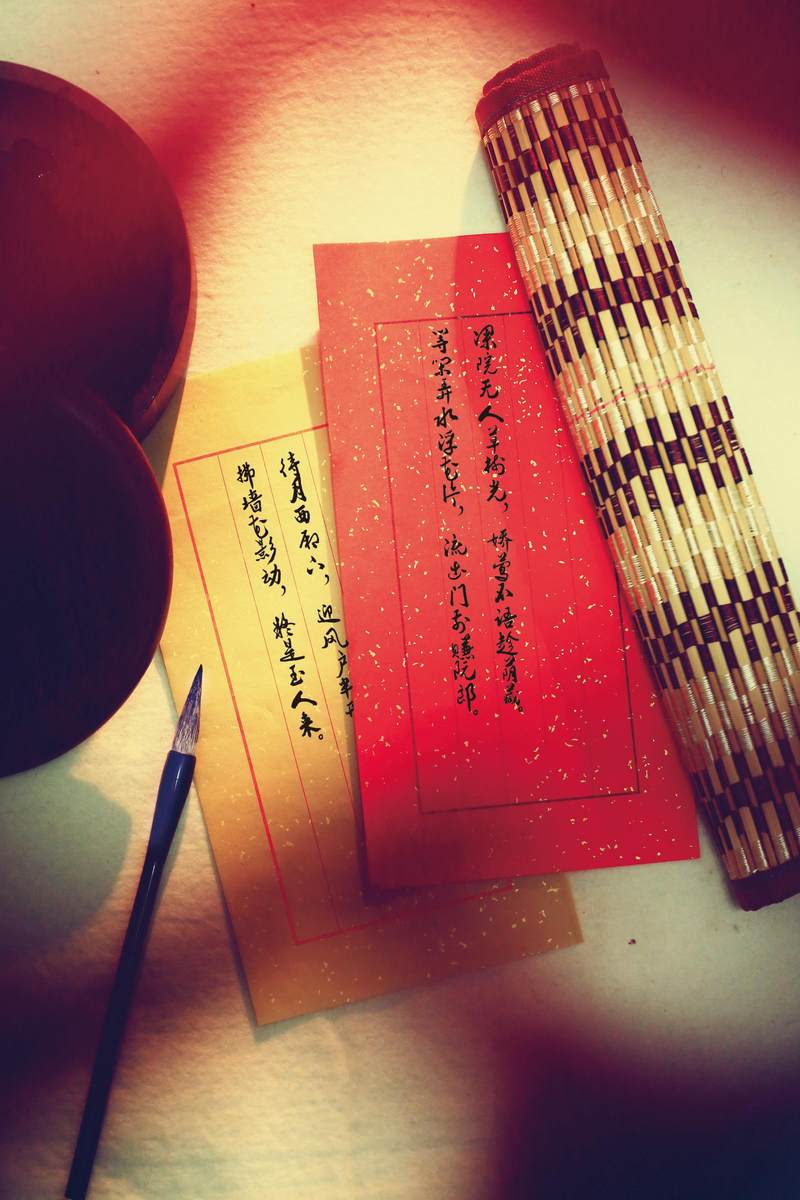 深院无人草树光，娇莺不语趁荫藏。
等闲弄水浮花片，流出门前赚阮郎。
待月西厢下，迎风户半开
拂墙花影动，疑是玉人来。